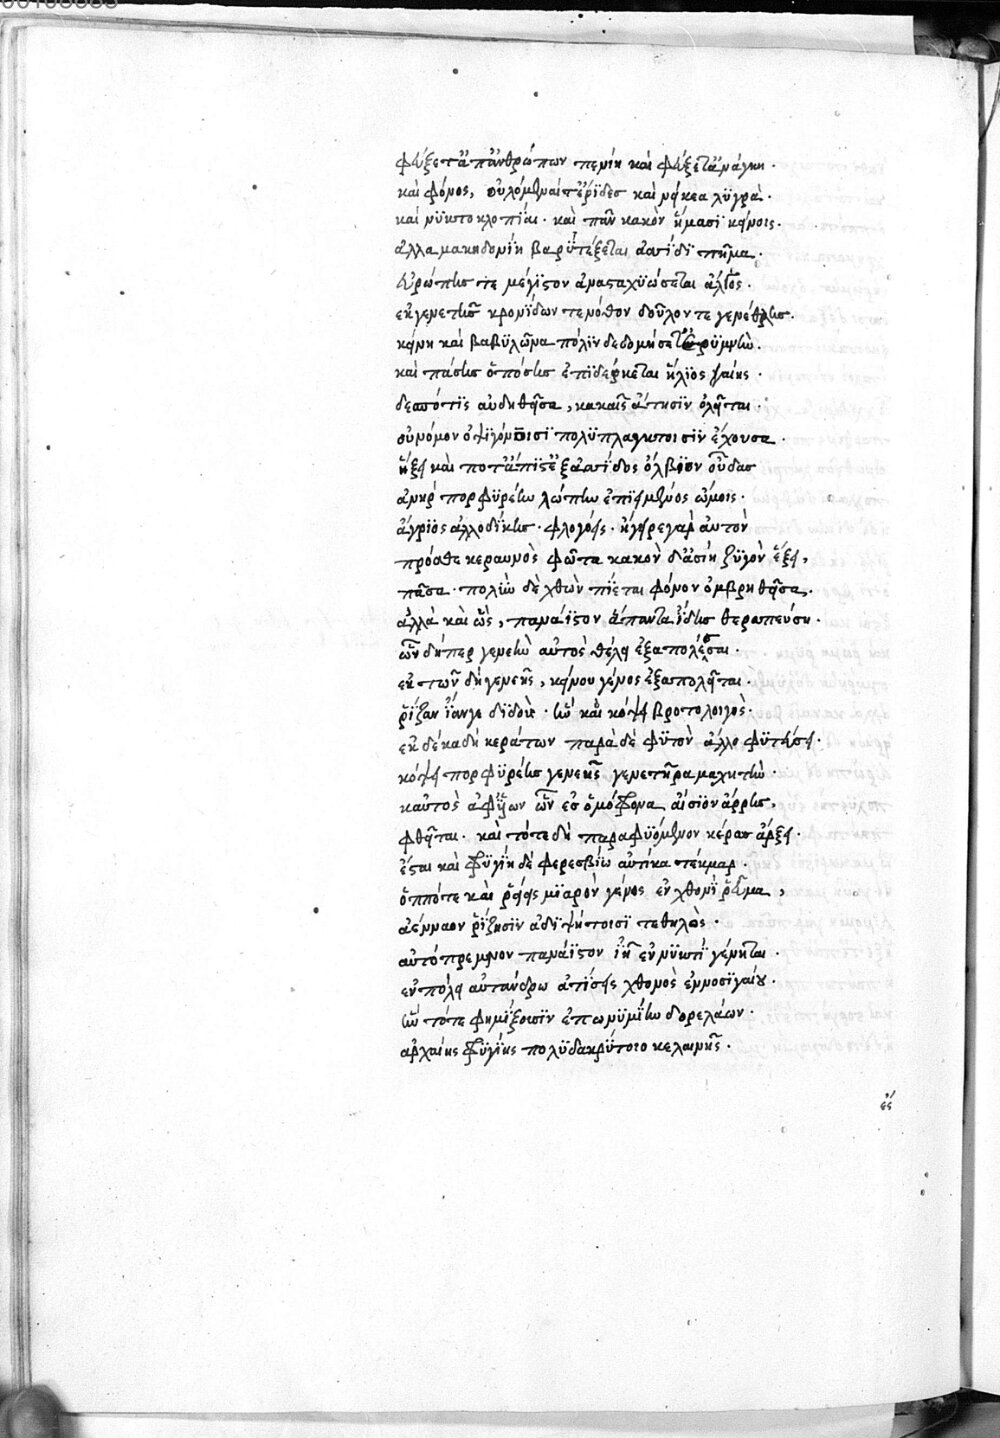 φεύξετ' ἀπ' ἀνθρώπων πενίη καὶ φεύξετ' ἀνάγκη·
καὶ φόνος, οὐλόμεναί τ' ἔριδες καὶ νείκεα λυγρὰ·
καὶ νυκτοκλοπίαι· καὶ πᾶν κακὸν ἤμασι κείνοις·
ἀλλα μακηδονίη βαρὺ τέξεται ἀσίδι πῆμα·
εὐρώπης τε μέγιστον ἀνασταχυώσεται ἄλγος·
ἐκ γενετῆς κρονίδων τε νόθων δούλων τε γενέθλης·
κείνη καὶ βαβυλῶνα πόλιν δεδομήσετ' ἐρυμνὼ·
καὶ πάσης ὁπόσης ἐπιδέρκεται ἥλιος γαίης·
δεσπότις αὐδηθεῖσα, κακαῖς ἄτῃσιν ὀλεῖται·
οὐ νόμον ὀψιγόνοισι πολυπλάγκτοισιν ἔχουσα·
ἥξει καὶ ποτ' ἄπιστ' ἐξ ἀσίδος ὄλβιον οὖδας
ἀνὴρ πορφυρέην λώπην ἐπιειμένος ὤμοις·
ἄγριος ἀλλοδίκης· φλογόεις· ἤγειρε γὰρ αὐτὸν
πρόσθε κεραυνὸς φῶτα κακὸν δ' ἀσίη ζυγὸν ἕξει,
πᾶσα· πολὺν δὲ χθὼν πίεται φόνον ὀμβρηθεῖσα,
ἀλλὰ καὶ ὣς, παναϊστον ἅπαντ' ἀΐδης θεραπεύσῃ·
ὧν δή περ γενεὴν αὐτὸς θέλει ἐξαπολέσσαι·
ἐκ τῶν δὴ γενεῆς, κείνου γένος ἐξαπολεῖται·
ῥίζαν ἴαν γε διδοὺς· ἣν καὶ κόψει βροτολοιγὸς·
ἐκ δέκα δὴ κεράτων παρὰ δὲ φυτὸν ἄλλο φυτεύσει·
κόψει πορφυρέης γενεῆς γενετῆρα μαχητὴν·
καὐτὸς ἀφ' υἱων ὧν ἐς ὁμόφρονα αἴσιον ἄρρης,
φθεῖται· καὶ τότε δὴ παραφυόμενον κέρας ἄρξει·
ἔσται καὶ φρυγίῃ δὲ φερεσβίῳ αὐτίκα τέκμαρ·
ὁππότε καὶ ῥείης μιαρὸν γένος ἐν χθονὶ ῥεῦμα,
ἀένναον ῥίζῃσιν ἀδιψήτοισι τεθηλὼς·
αὐτόπρεμνον παναϊστον ἰῇ ἐν νυκτὶ γένηται·
ἐν πόλει αὐτάνδρῳ ἀπίσεις χθονὸς ἐννοσιγαίου·
ἣν τότε φημίξουσιν ἐπωνυμίην δορυλάων·
ἀρχαίης φρυγίης πολυδακρύτοιο κελαινῆς·
ἔσ